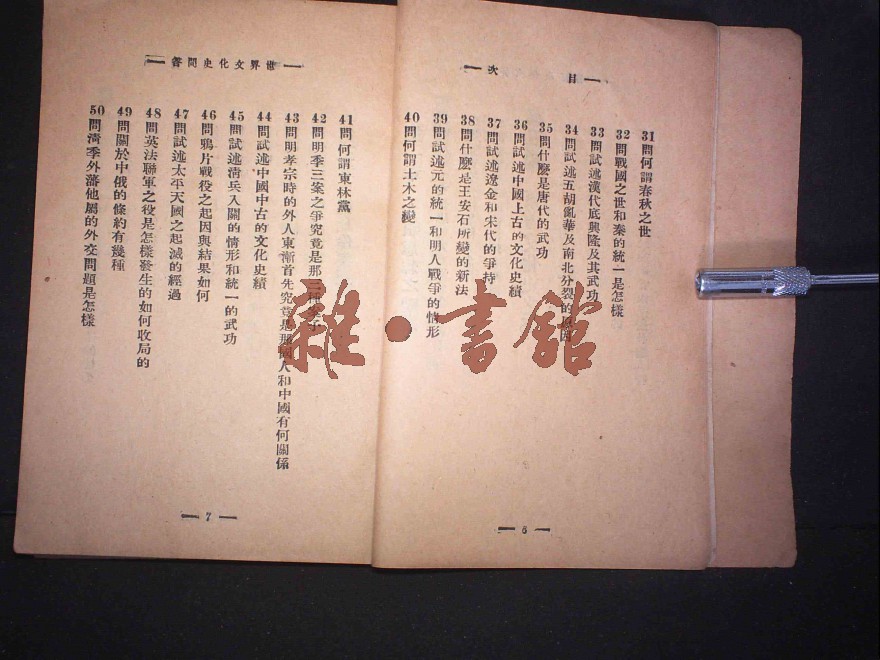 目次
31問何謂春秋之世
32問戰國之世和秦的統一是怎樣
33問試述漢代底興隆及其武功
34問試述五胡亂華及南北分裂的原因
35問什麼是唐代的武功
36問試述中國上古的文化史績
37問試述遼金和宋代的爭持
38問什麼是王安石所變的新法
39問試述元的統一和明人戰爭的情形
40問何謂土木之變
6
世界文化史問答
41問何謂東林黨
42問明季三案之爭究竟是那三種案子
43問明孝宗時的外人東漸首先究竟是那國人和中國有何關係
44問試述中國中古的文化史績
45問試述清兵入關的情形和統一的武功
46問鴉片戰役之起因與結果如何
47問試述太平天國之起滅的經過
48問英法聯軍之役是怎樣發生的如何收局的
49問關於中俄的條約有幾種
50問清季外藩他屬的外交問題是怎樣
7
雜·書館